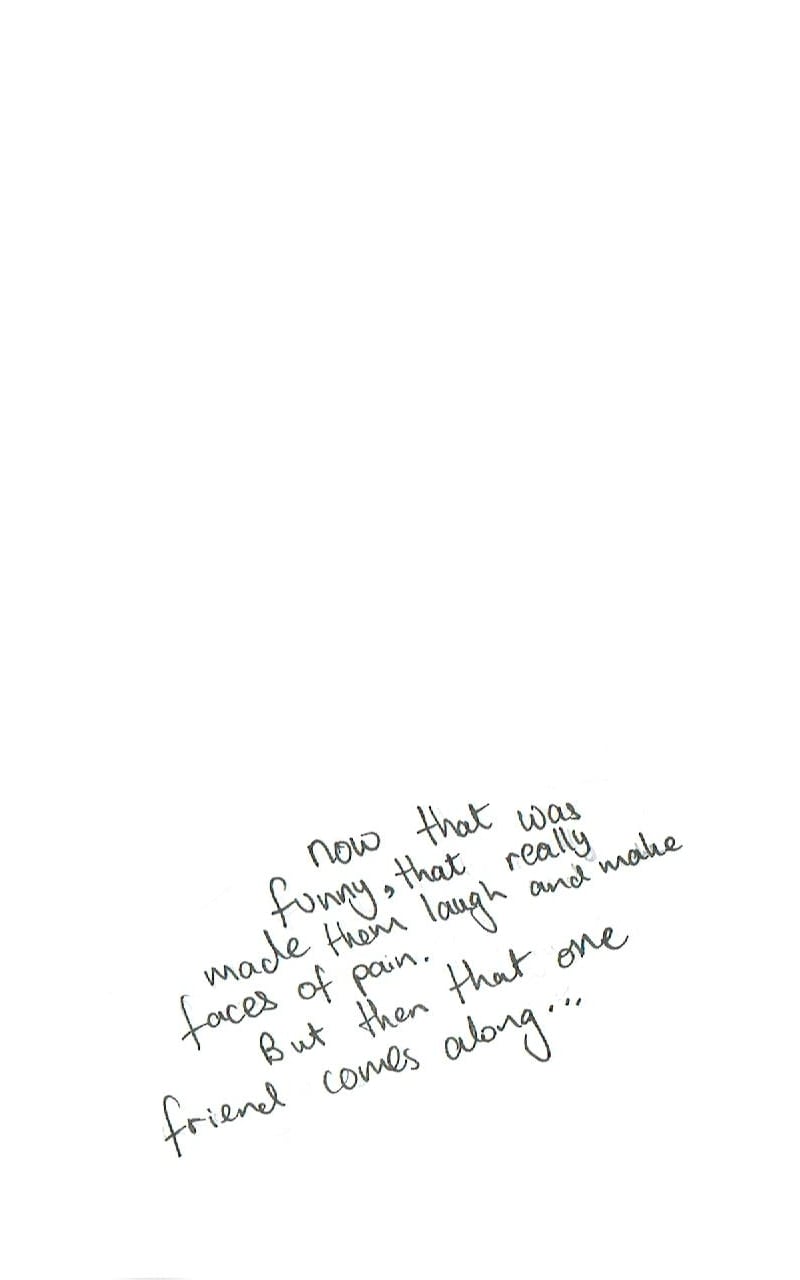 now that was
funny, that really
made them laugh and make
faces of pain.
But then that one
friend comes along...